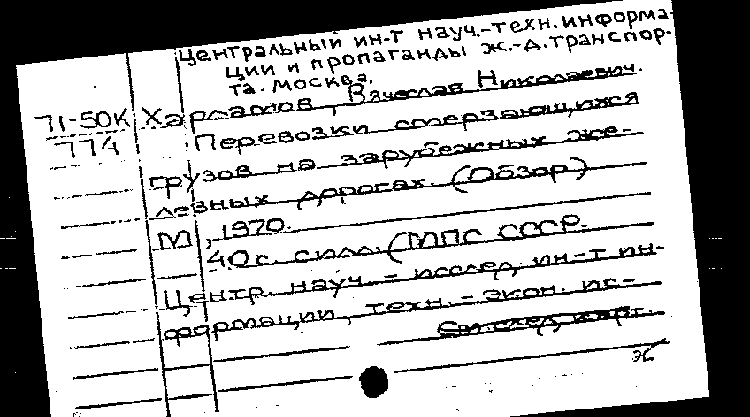 Центральный ин-т науч.-техн. информа-
ции и пропаганды ж.-д. транспор-
та. Москва.
71-50К Харламов, Вячеслав Николаевич.
774 Перевозки смерзающихся
грузов на зарубежных же-
лезных дорогах. (Обзор)
М., 1970.
40 с. с илл. (МПС СССР.
Центр. науч.-исслед. ин-т ин-
формации, техн.-экон. ис-
См. след. карт.